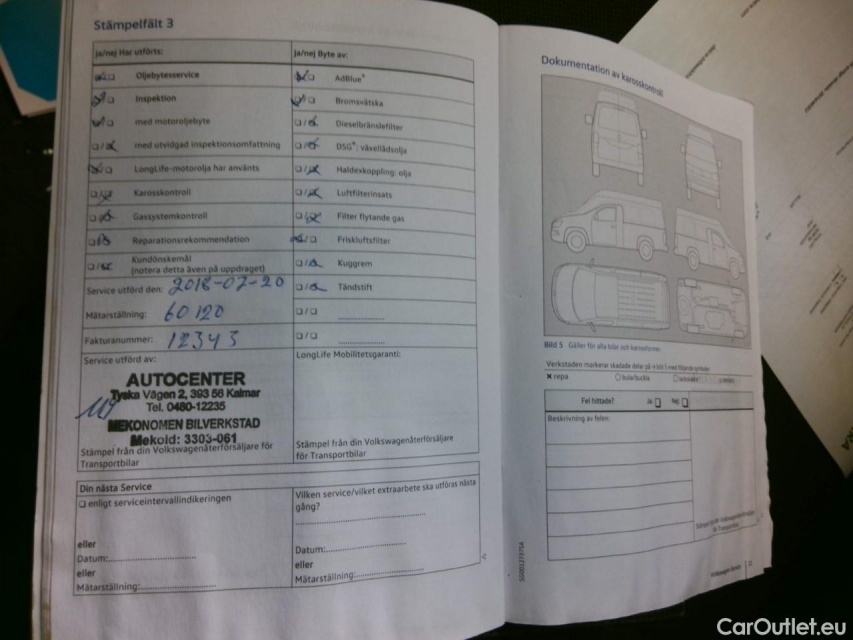 Stämpelfält 3
Ja/nej Har utförts:
Ja/nej Byte av:
Oljebytesservice
AdBlue®
Inspektion
Bromsvätska
med motoroljebyte
Dieselbränslefilter
med utvidgad inspektionsomfattning
DSG®: växellådsolja
LongLife-motorolja har använts
Haldexkoppling: olja
Karosskontroll
Luftfilterinsats
Gassystemkontroll
Filter flytande gas
Reparationsrekommendation
Friskluftsfilter
Kundönskemål
(notera detta även på uppdraget)
Kuggrem
Service utförd den: 2018-02-20
Tändstift
Mätarställning: 60120
Fakturanummer: 12343
Service utförd av:
LongLife Mobilitetsgaranti:
AUTOCENTER
Tyska Vägen 2, 393 56 Kalmar
Tel. 0480-12235
MEKONOMEN BILVERKSTAD
Mekoid: 3303-061
Stämpel från din Volkswagenåterförsäljare för
Transportbilar
Stämpel från din Volkswagenåterförsäljare
för Transportbilar
Din nästa Service
enligt serviceintervallindikeringen
eller
Datum:
eller
Mätarställning:
Vilken service/vilket extraarbete ska utföras nästa
gång?
Datum:
eller
Mätarställning:
Dokumentation av karosskontroll
Bild 5 Gäller för alla bilar och karosformer.
Verkstaden markerar skadade delar på → bild 5 med följande symboler
repa
bula/buckla
Fel hittade? Ja Nej
Beskrivning av felen:
CarOutlet.eu